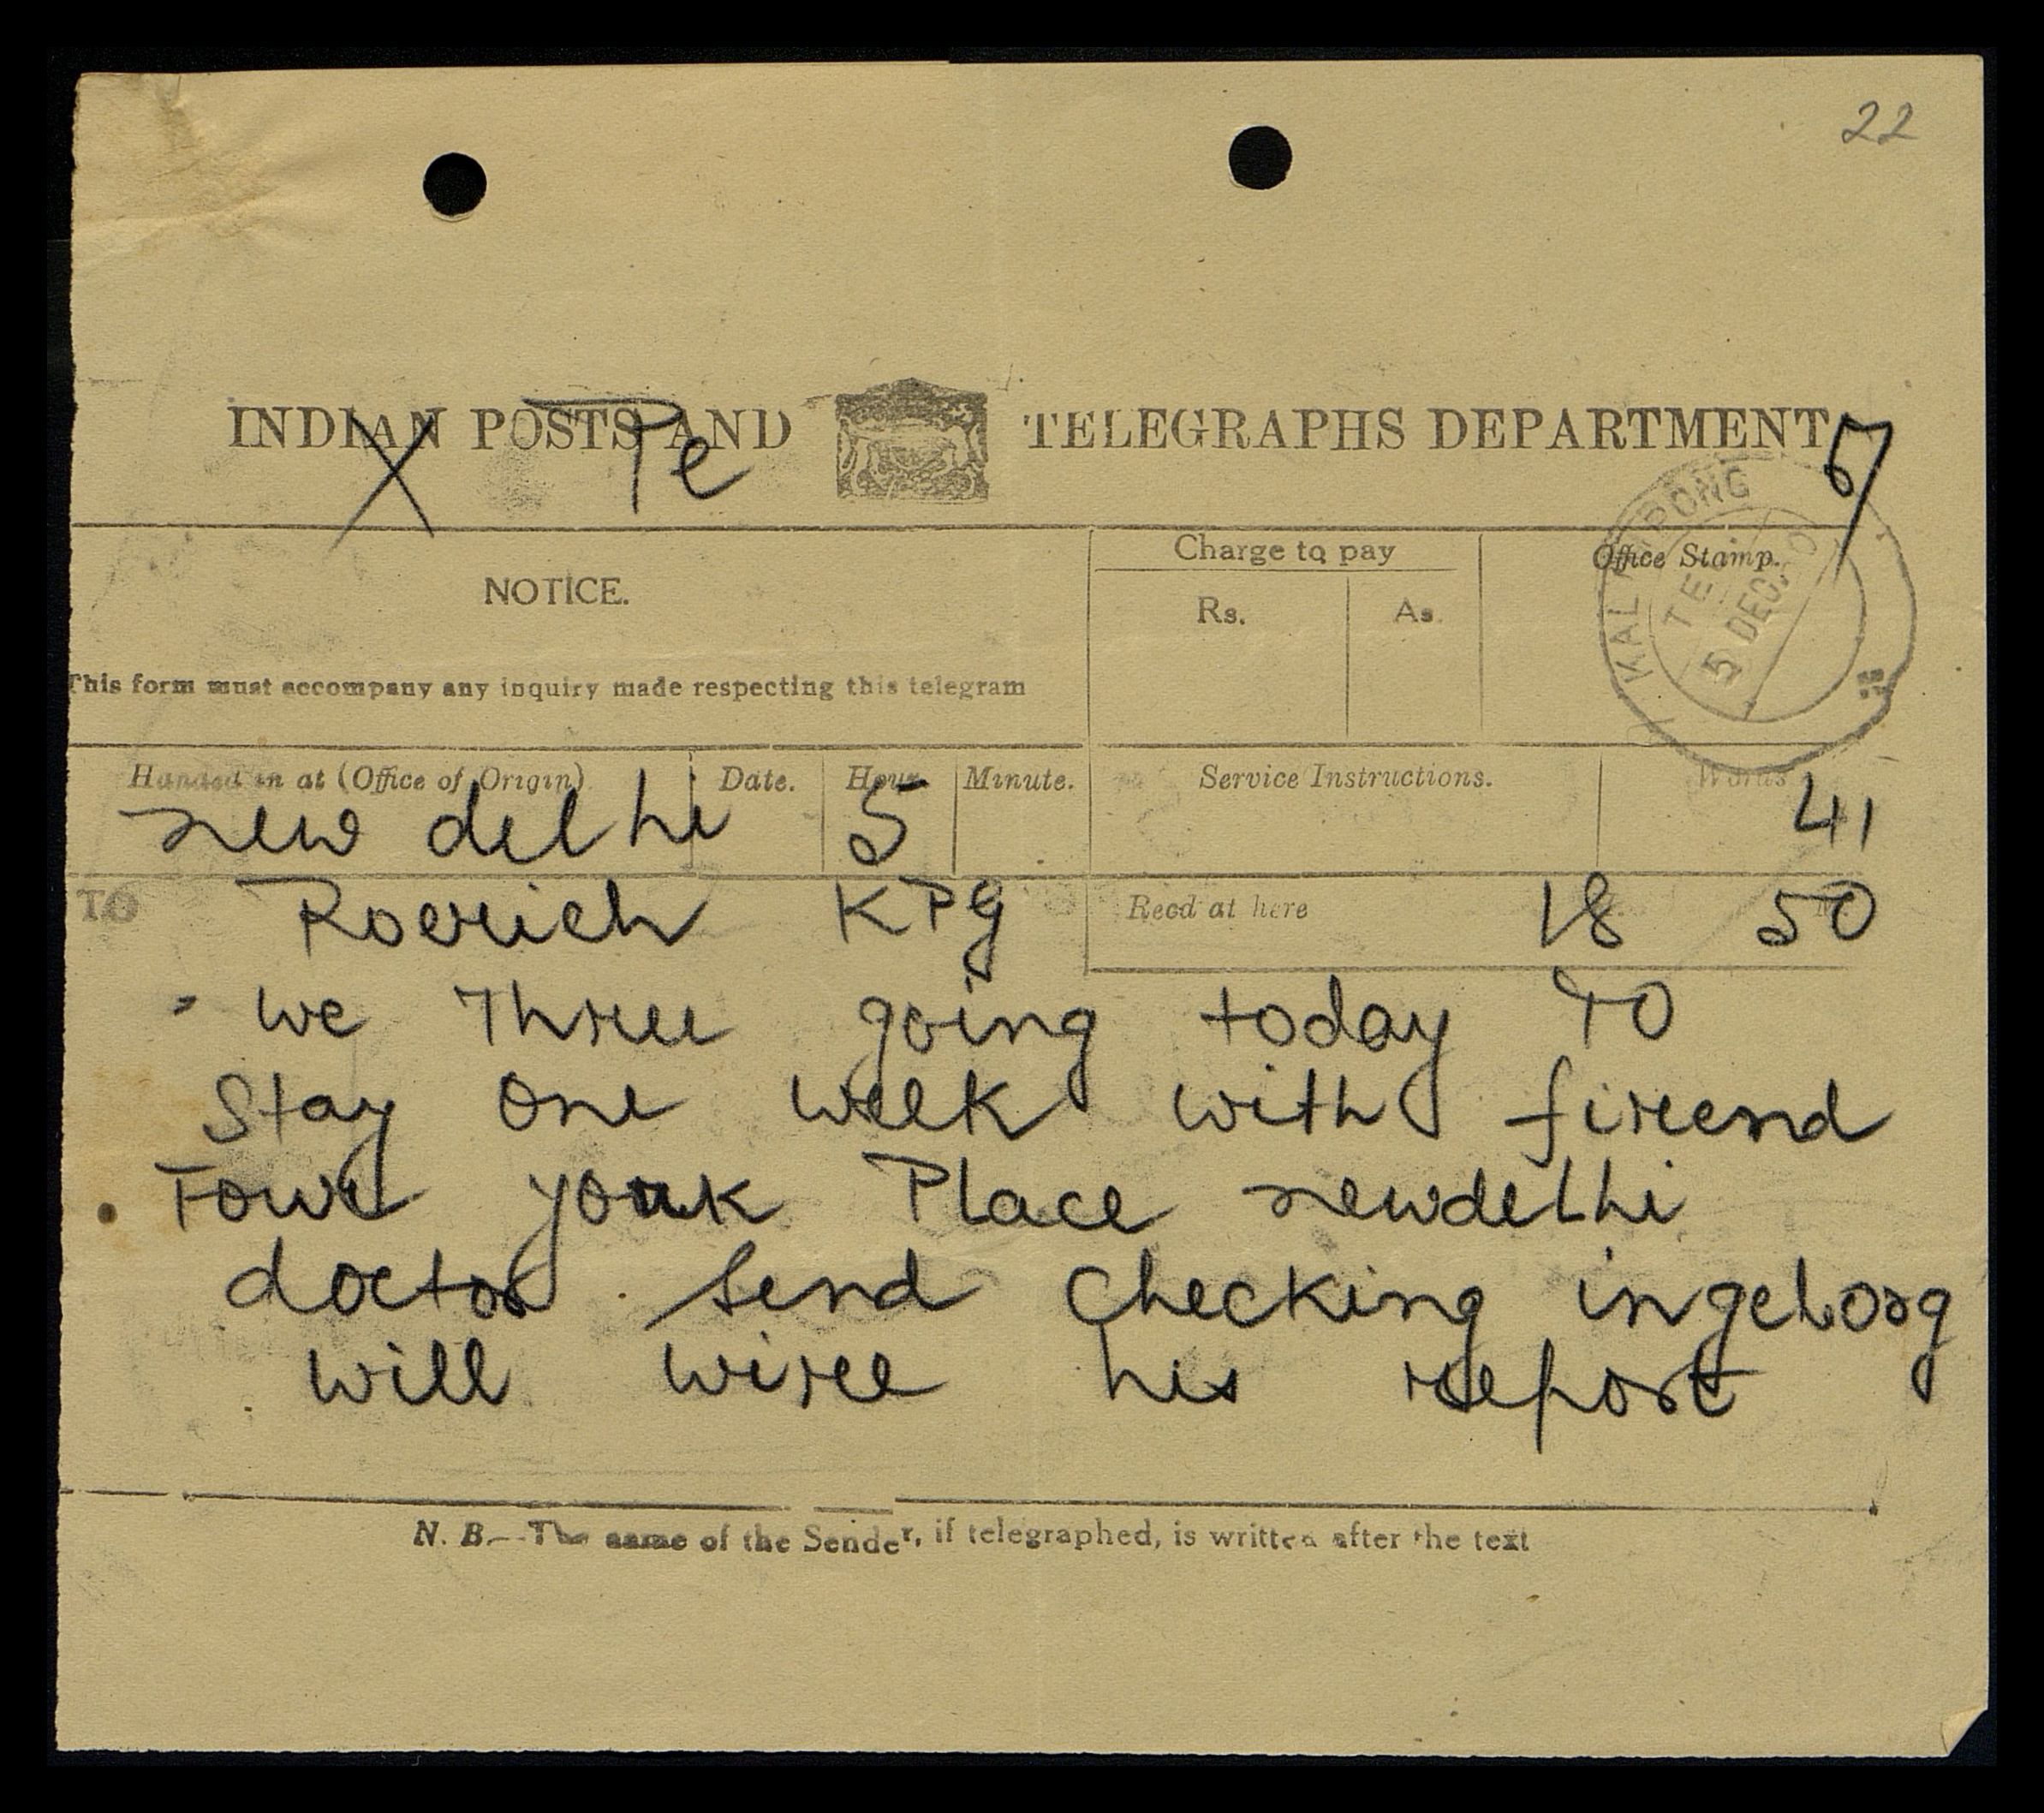 22
INDIAN POSTS AND TELEGRAPHS DEPARTMENT
X Te
NOTICE.
Charge to pay
Office Stamp.
Rs. As.
KALIMPONG
TEL
5 DEC.
This form must accompany any inquiry made respecting this telegram
Handed in at (Office of Origin) Date. Hour Minute. Service Instructions. Words
new delhi 5 41
TO Roerich KPG Recd at here 18 50
we three going today TO
Stay one week with fireend
Four york Place newdelhi
doctor send checking ingeborg
will wiree his report
N. B.—The name of the Sender, if telegraphed, is written after the text